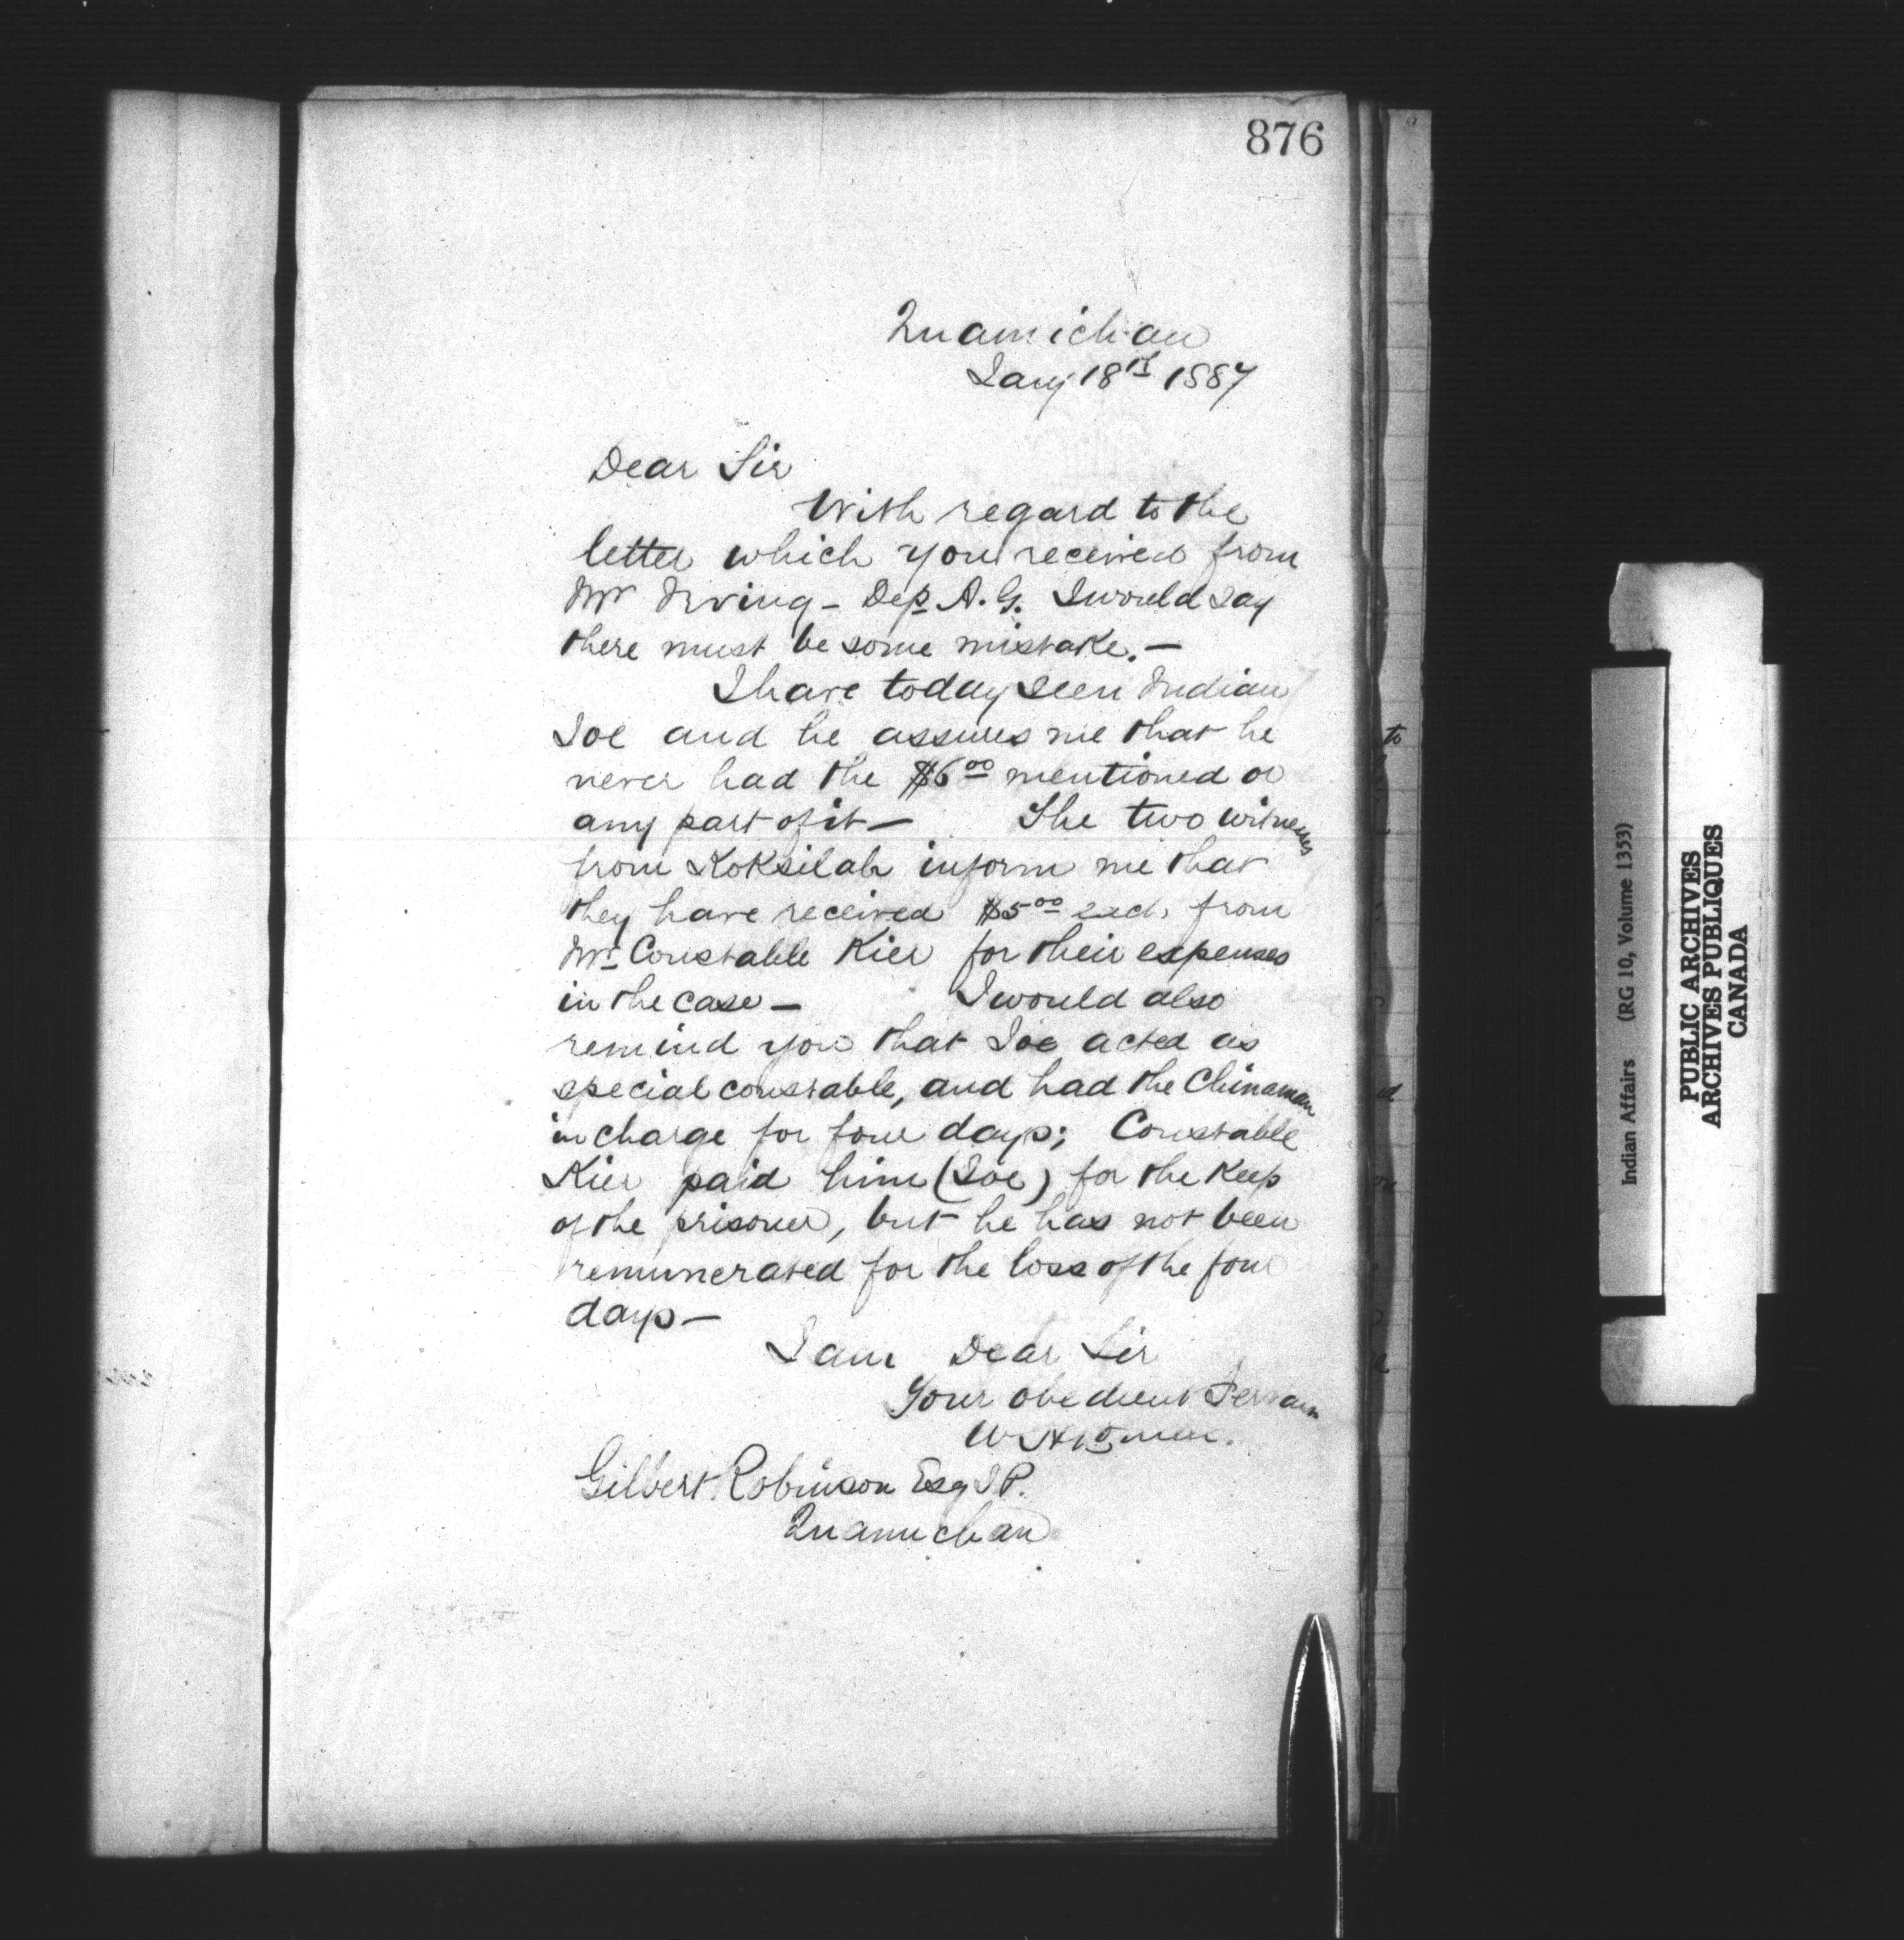 876
Quamichan
Jany 18th 1887
Dear Sir
With regard to the
letter which you received from
Mr Irving - Dep A. G. I would say
there must be some mistake. -
I have today seen Indian
Joe and he assures me that he
never had the $6.00 mentioned or
any part of it - The two witnesses
from Koksilah inform me that
they have received $5.00 each from
Mr Constable Kier for their expenses
in the case - I would also
remind you that Joe acted as
special constable, and had the Chinaman
in charge for four days; Constable
Kier paid him (Joe) for the keep
of the prisoner, but he has not been
remunerated for the loss of the four
days -
I am Dear Sir
Your obedient Servant
W
Gilbert Robinson Esq J P.
Quamichan
to
d
on
Indian Affairs (RG 10, Volume 1353)
PUBLIC ARCHIVES
ARCHIVES PUBLIQUES
CANADA